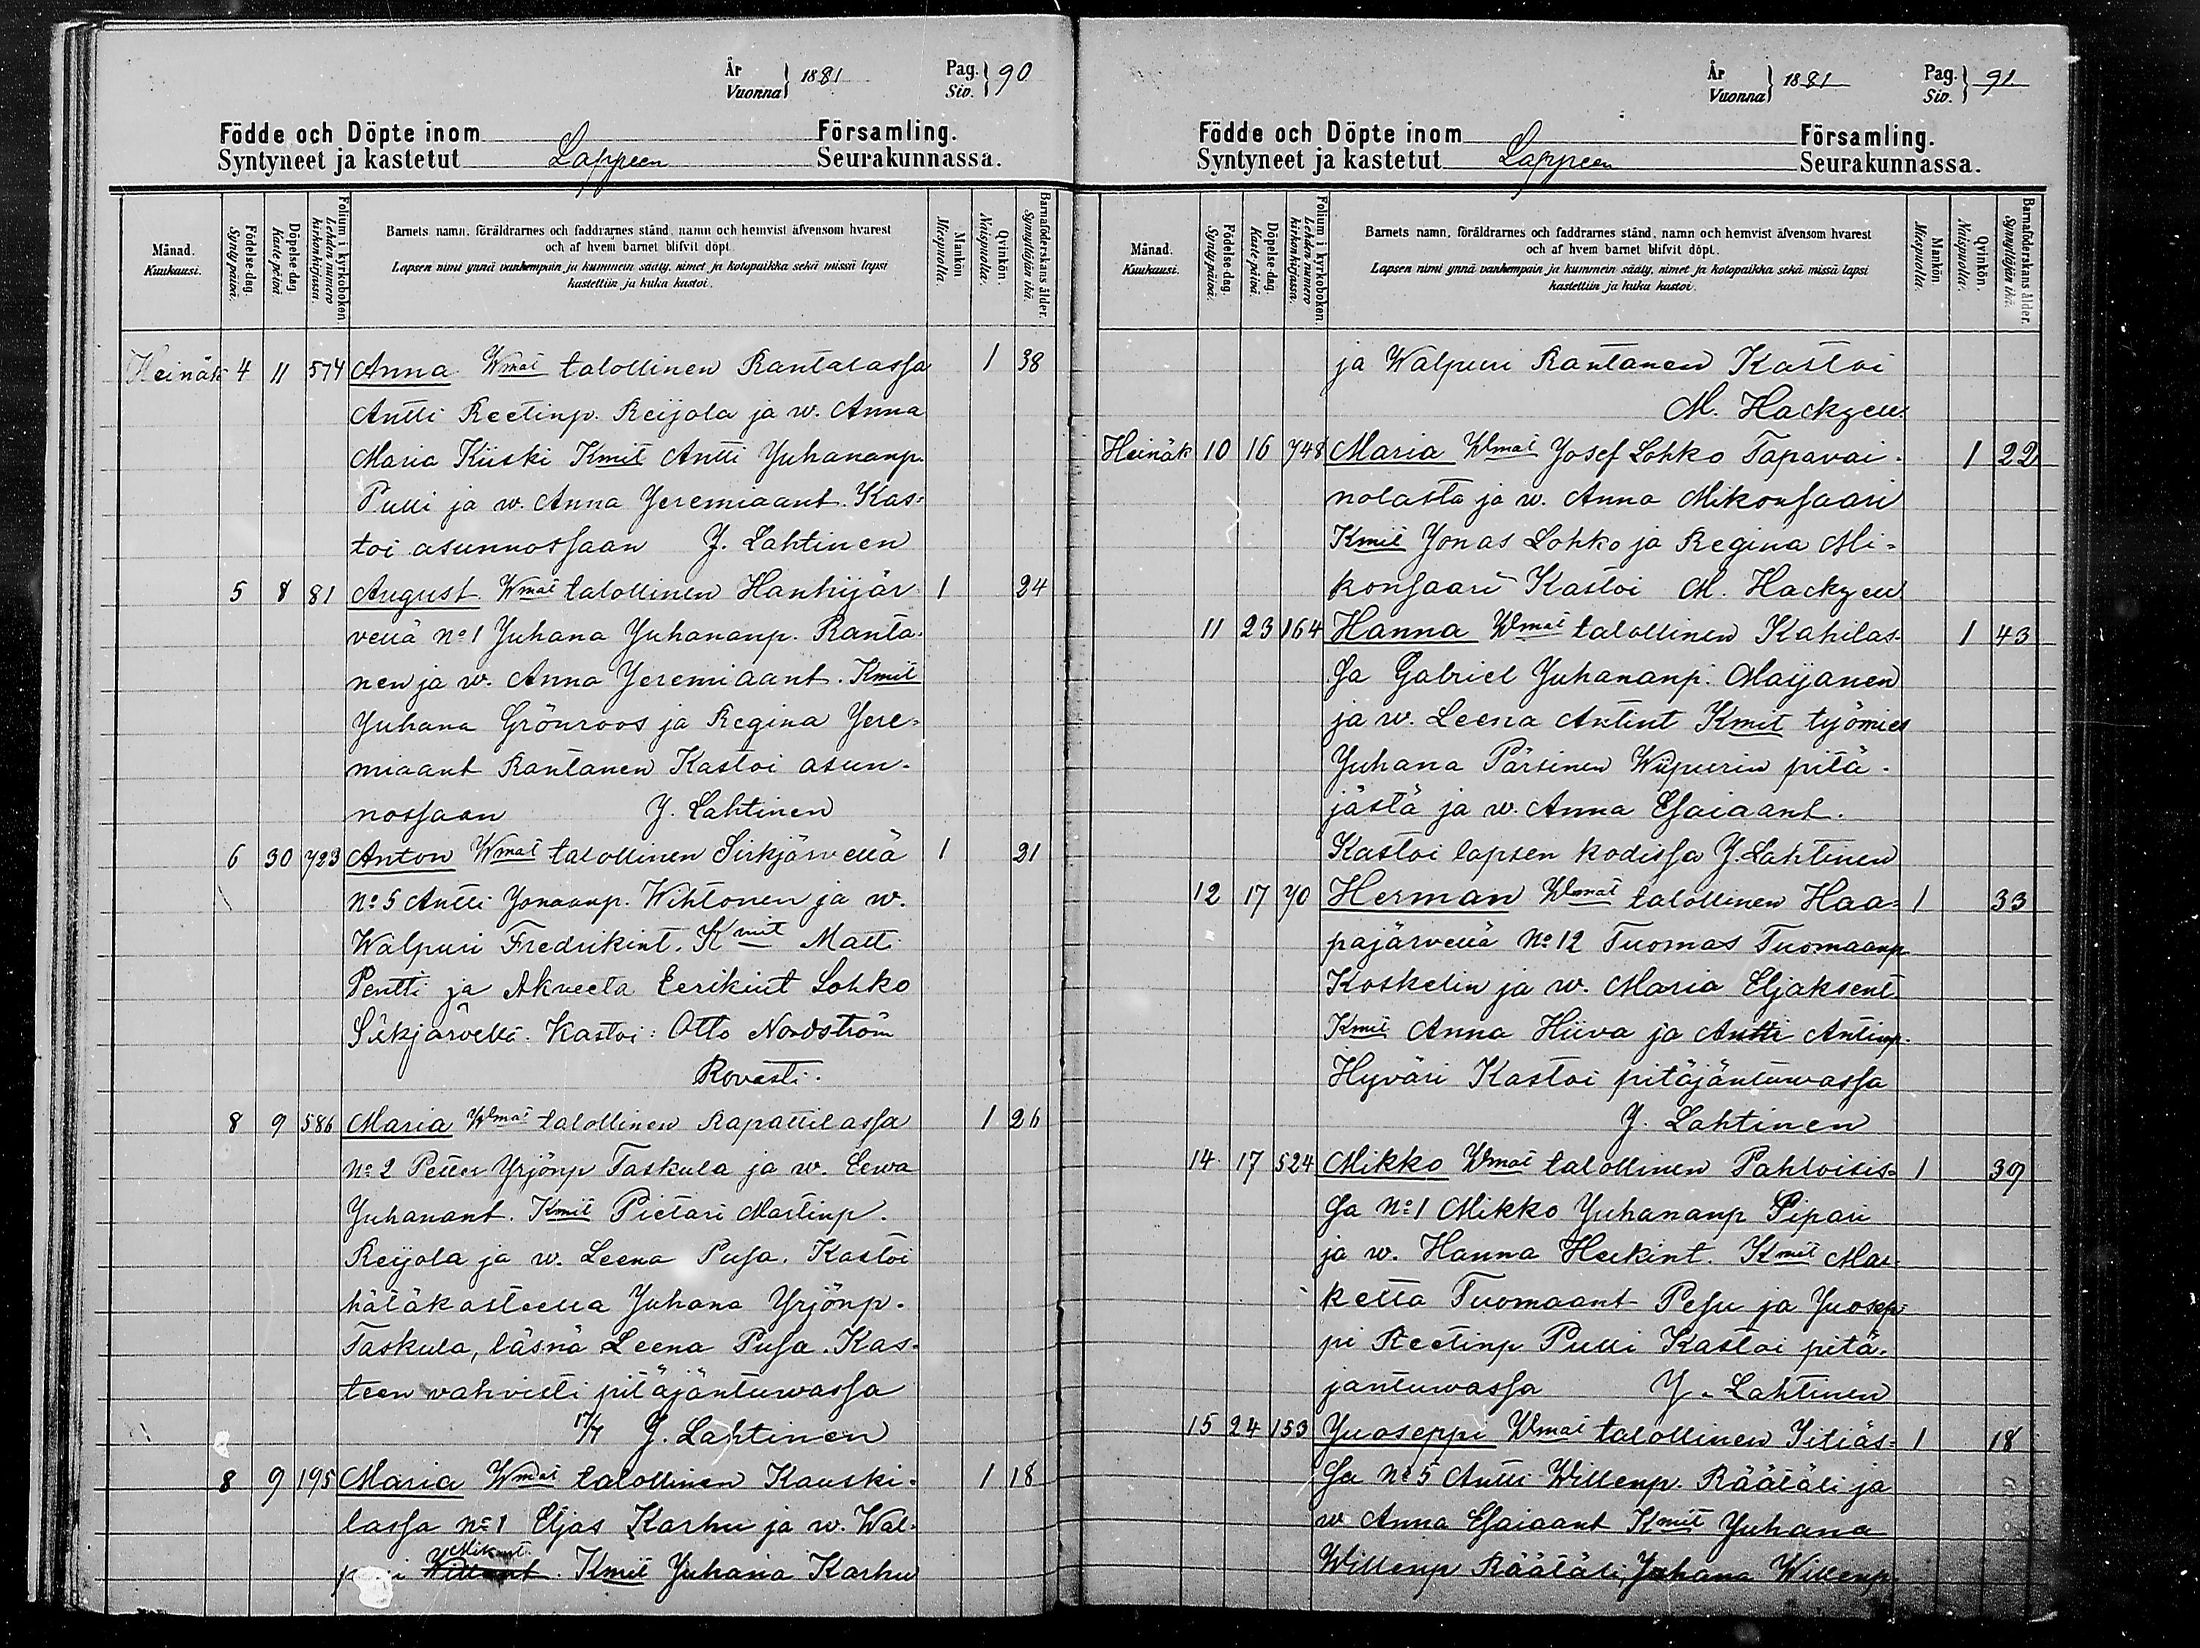 År
Vuonna } 1881
Pag.
Siv. } 90
Födde och Döpte inom Församling.
Syntyneet ja kastetut Lappeen Seurakunnassa.
Månad.
Kuukausi.
Födelse-dag.
Synty päivä.
Döpelse-dag.
Kaste päivä
Folium i kyrkoboken.
Lehden numero kirkonkirjassa.
Barnets namn, föräldrarnes och faddrarnes stånd, namn och hemvist äfvensom hvarest
och af hvem barnet blifvit döpt.
Lapsen nimi ynnä vanhempain ja kummein sääty, nimet ja kotopaikka sekä missä lapsi
kastettiin ja kuka kastoi.
Mankön
Miespuolia.
Qvinkön.
Naispuolia.
Barnaföderskans ålder.
Synnyttäjän ikä.
Heinäk 4 11 574 Anna Wmat talollinen Rantalassa 1 38
Antti Reetinp. Reijola ja w. Anna
Maria Kiiski Kmit Antti Juhananp.
Pulli ja w. Anna Jeremiaant. Kas-
toi asunnossaan J. Lahtinen
5 8 81 August Wmat talollinen Hanhijär- 1 24
vellä No 1 Juhana Juhananp. Ranta-
nen ja w. Anna Jeremiaant. Kmit
Juhana Grönroos ja Regina Jere-
miaant Rantanen Kastoi asun-
nossaan J. Lahtinen
6 30 723 Anton Wmat talollinen Sirkjärvellä 1 21
No 5 Antti Jonaanp. Wihtonen ja w.
Walpuri Fredrikint. Kmit Matt.
Pentti ja Akveeta Eerikint Lohko
Sirkjärvellä. Kastoi: Otto Nordström
Rovasti.
8 9 586 Maria Wmat talollinen Rapattilassa 1 26
No 2 Petter Yrjönp Taskula ja w. Eewa
Juhanant. Kmit Pietari Martinp.
Reijola ja w. Leena Pusa. Kastoi
hätäkasteella Juhana Yrjönp.
Taskula, läsnä Leena Pusa. Kas-
teen vahvisti pitäjäntuwassa
17/7 J. Lahtinen
8 9 195 Maria Wmat talollinen Kauski- 1 18
lassa No 1 Eljas Karhu ja w. Wal-
Mikint.
Willent. Kmit Juhana Karhu
År
Vuonna } 1881
Pag.
Siv. } 91.
Födde och Döpte inom Församling.
Syntyneet ja kastetut Lappeen Seurakunnassa.
Månad.
Kuukausi.
Födelse-dag.
Synty päivä.
Döpelse-dag.
Kaste päivä
Folium i kyrkoboken.
Lehden numero kirkonkirjassa.
Barnets namn, föräldrarnes och faddrarnes stånd, namn och hemvist äfvensom hvarest
och af hvem barnet blifvit döpt.
Lapsen nimi ynnä vanhempain ja kummein sääty, nimet ja kotopaikka sekä missä lapsi
kastettiin ja kuka kastoi.
Mankön
Miespuolia.
Qvinkön.
Naispuolia.
Barnaföderskans ålder.
Synnyttäjän ikä.
ja Walpuri Rantanen Kastoi
M. Hackzell.
Heinäk 10 16 748 Maria Wmat Josef Lohko Tapavai- 1 22
nolasta ja w. Anna Mikonsaari
Kmit Jonas Lohko ja Regina Mi-
konsaari Kastoi M. Hackzell
11 23 164 Hanna Wmat talollinen Kahilas- 1 43
sa Gabriel Juhananp. Maijanen
ja w. Leena Antint Kmit työmies
Juhana Pärsinen Wiipurin pitä-
jästä ja w. Anna Esaiaant.
Kastoi lapsen kodissa J. Lahtinen
12 17 70 Herman Wmat talollinen Haa- 1 33
pajärvellä No 12 Tuomas Tuomaanp
Koskelin ja w. Maria Eljaksent.
Kmit Anna Hiiva ja Antti Antinp.
Hyväri Kastoi pitäjäntuwassa
J. Lahtinen
14 17 524 Mikko Wmat talollinen Pahloisis- 1 39
sa No 1 Mikko Juhananp Sipari
ja w. Hanna Heikint. Kmit Mar-
ketta Tuomaant Pesu ja Juosep-
pi Reetinp Pulli Kastoi pitä-
jäntuwassa J. Lahtinen
15 24 153 Juoseppi Wmat talollinen Yitiäs- 1 18
sa No 5 Antti Willenp. Räätäli ja
w. Anna Esaiaant Kmit Juhana
Willenp Räätäli, Juhana Willenp